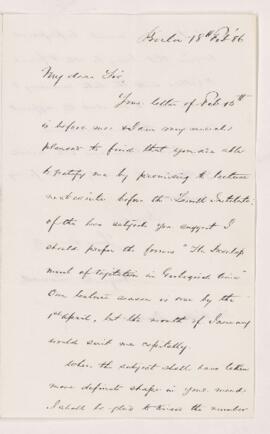 Boston 18th Feb '86
My dear Sir,
Your letter of Feb 16th
is before me & I am very much
pleased to find that you are able
to gratify me by promising to lecture
next winter before the Lowell Institute.
Of the two subjects you suggest I
should prefer the former "The Develop-
ment of Vegetation in Geological time"
Our lecture season is over by the
1st April, but the month of January
would suit me capitally.
When the subject shall have taken
more definite shape in your mind,
I shall be glad to know the number